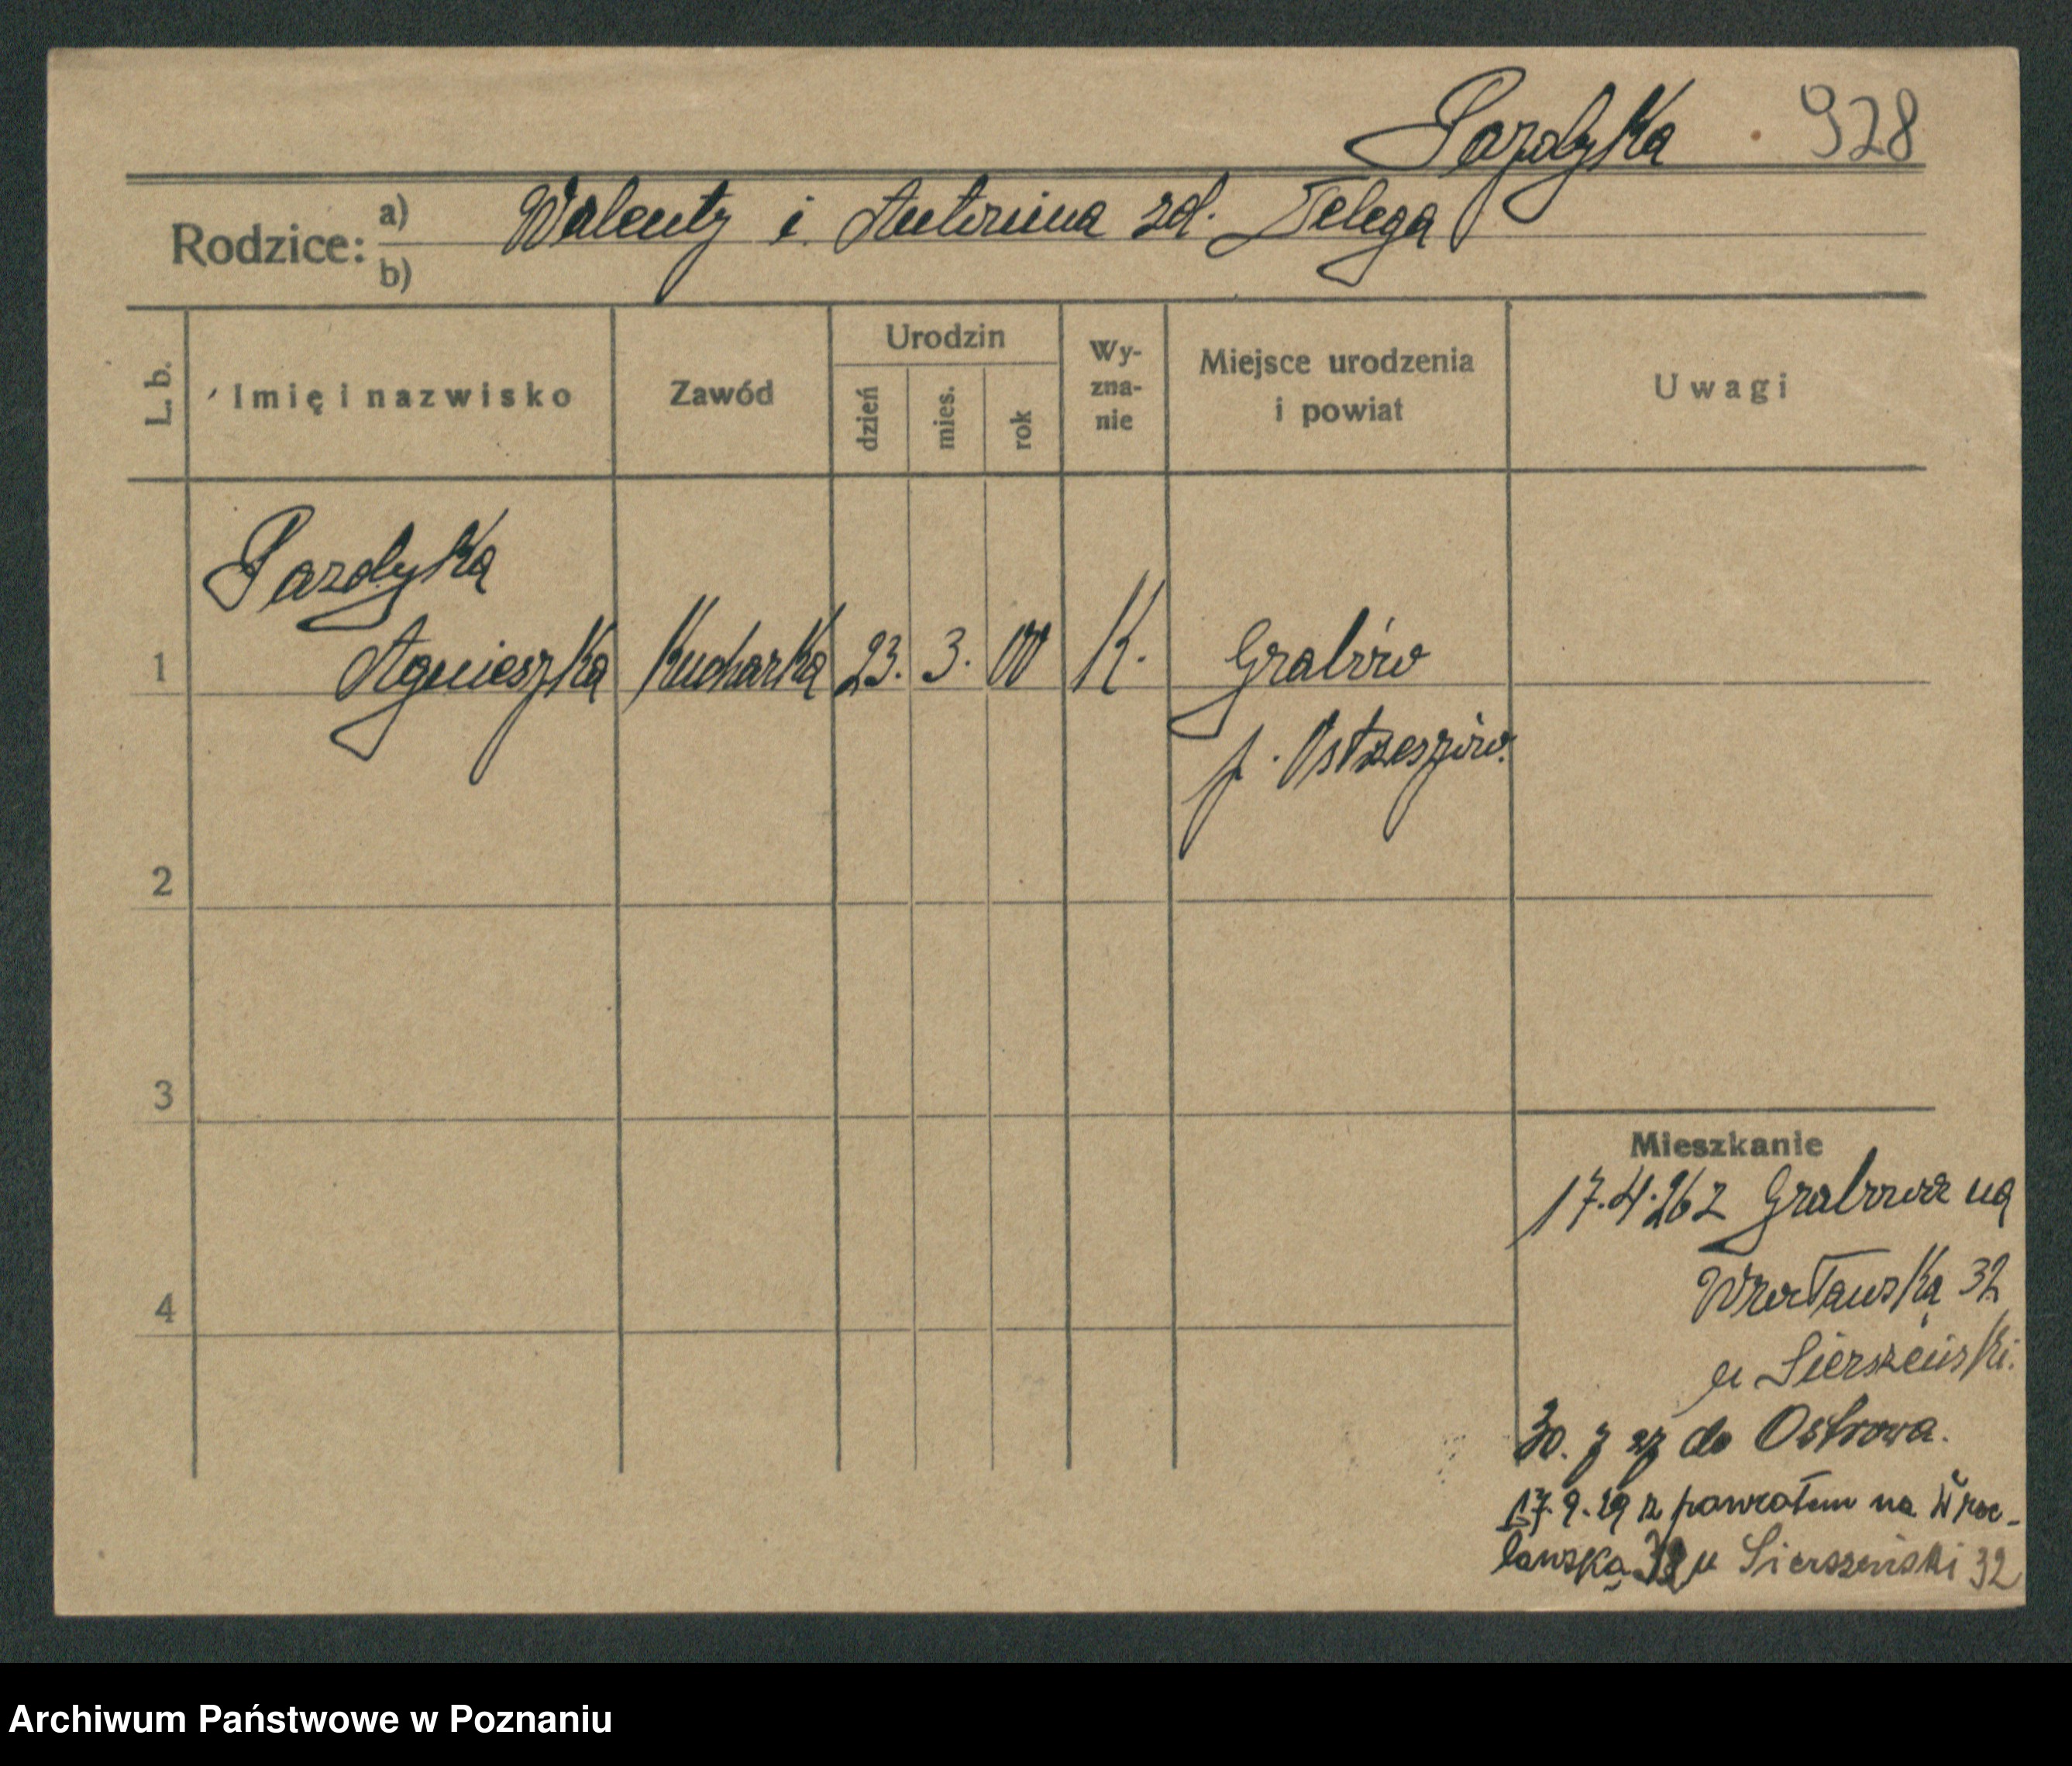 Pazdyka 928
Rodzice: a) Walenty i Antonina zd. Telega
b)
L. b. Imię i nazwisko Zawód Urodzin dzień mies. rok Wy-zna-nie Miejsce urodzenia i powiat Uwagi
Pazdyka
1 Agnieszka Kucharka 23. 3. 00 K. Grabów
p. Ostrzeszów.
2
3
Mieszkanie
17.4.26 z Grabowa na
Wrocławską 32
4
u Sierszeński.
30. 7 do Ostrowa.
17.9.29 z powrotem na Wroc-
lawską 32 u Sierszeński 32
Archiwum Państwowe w Poznaniu